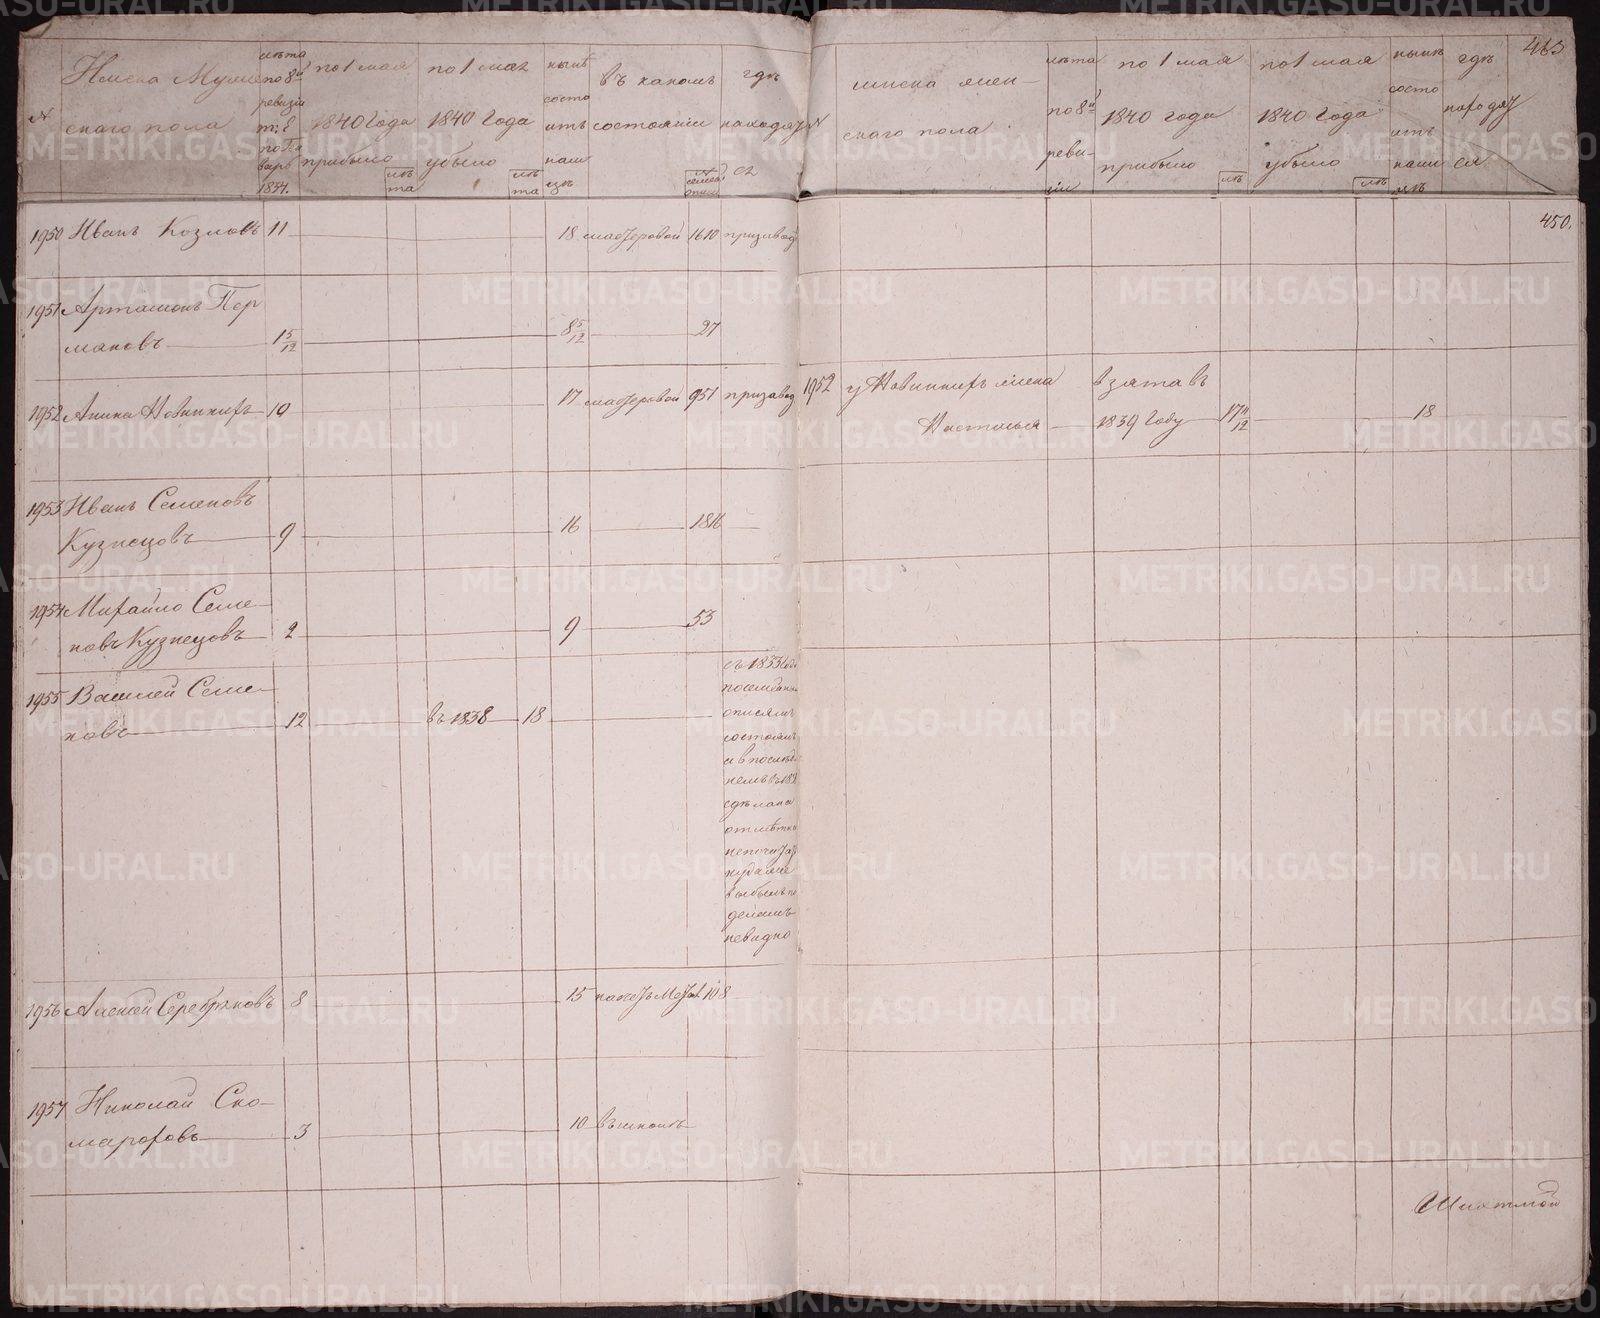 463
№
Имена Муже
скаго пола
лѣта
по 8й
ревизіи
1834.
по 1 мая
1840 Года
прибыло
лѣ
та
по 1 мая
1840 Года
убыло
лѣ
та
нынѣ
состо
итъ
въ какомъ
состояніи
№
семей
гдѣ
находят
ся
№
имена жен
скаго пола
лѣта
по 8й
реви
зіи
по 1 мая
1840 года
прибыло
лѣ
по 1 мая
1840 года
убыло
лѣ
нынѣ
состо
итъ
гдѣ
находят
ся
450.
1950 Иванъ Козловъ 11 18 мастеровой 1610 призавод
1951 Артамонъ Пер
маковъ 1 5/12 8 5/12 27
1952 Аника Новинкиръ 10 17 мастеровой 951 призавод
1952 у Новинкиръ жена взята въ
Настасья 1839 Году 17 11/12 18
1953 Иванъ Семеновъ
Кузнецовъ 9 16 1816
1954 Михайло Семе
новъ Кузнецовъ 2 9 53
1955 Василей Семе
новъ 12 въ 1838 18
съ 1833 Года
описямъ
состоялъ
а в послѣд
немъ въ 183
сдѣлана
отмѣтка
куда же
выбылъ по
деламъ
невидно
1956 Алексей Серебряковъ 8 15 108
1957 Николай Ско
мороховъ 3 10 въ школѣ
METRIKI.GASO-URAL.RU